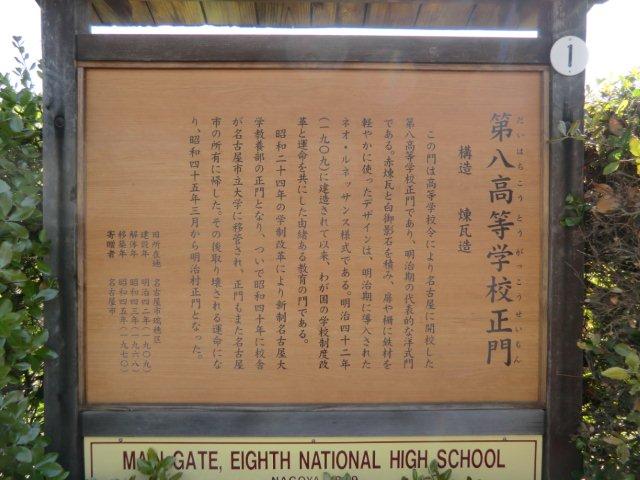 1
第八高等学校正門
だいはちこうとうがっこうせいもん
構造 煉瓦造
この門は高等学校令により名古屋に開校した
第八高等学校正門であり、明治期の代表的な洋式門
である。赤煉瓦と白御影石を積み、扉や柵に鉄材を
軽やかに使ったデザインは、明治期に導入された
ネオ・ルネッサンス様式である。明治四十二年
(一九〇九)に建造されて以来、わが国の学校制度改
革と運命を共にした由緒ある教育の門である。
昭和二十四年の学制改革により新制名古屋大
学教養部の正門となり、ついで昭和四十年に校舎
が名古屋市立大学に移管され、正門もまた名古屋
市の所有に帰した。その後取り壊される運命にな
り、昭和四十五年三月から明治村正門となった。
旧所在地 名古屋市瑞穂区
建設年 明治四二年(一九〇九)
解体年 昭和四三年(一九六八)
移築年 昭和四五年(一九七〇)
寄贈者 名古屋市
MAIN GATE, EIGHTH NATIONAL HIGH SCHOOL
NAGOYA 1909